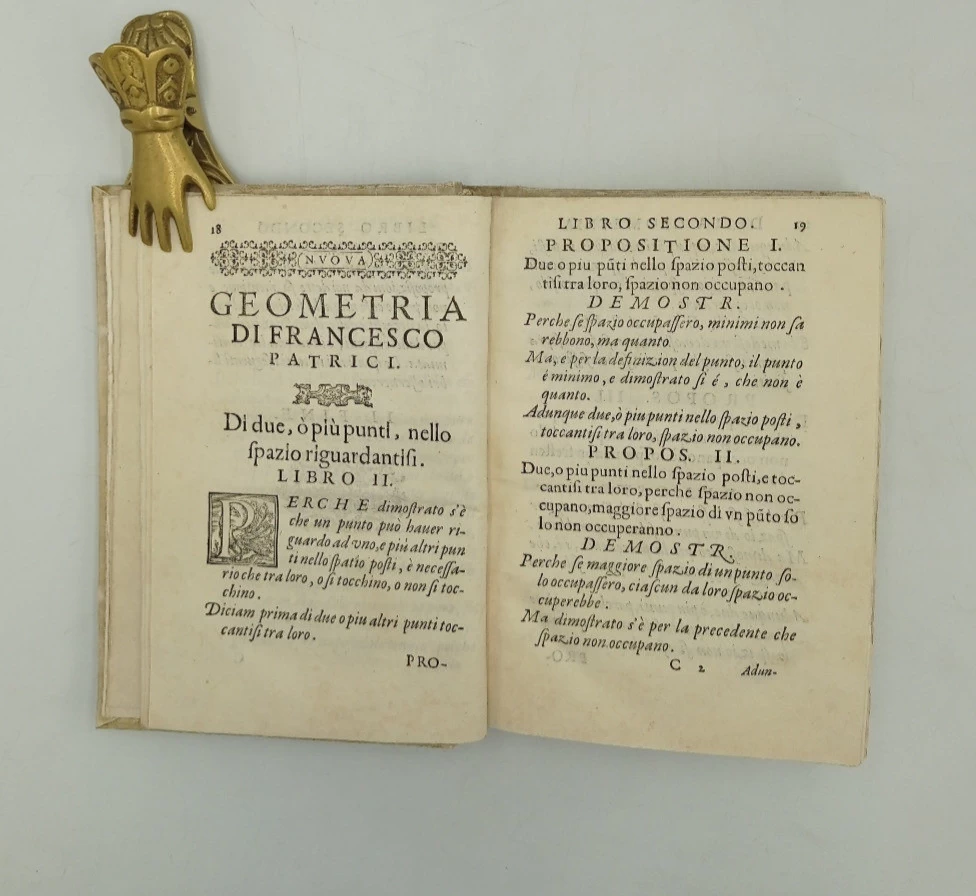 18
NVOVA
GEOMETRIA
DI FRANCESCO
PATRICI.
Di due, ò più punti, nello
ſpazio riguardantiſi.
LIBRO II.
PERCHE dimoſtrato s'è
che un punto può hauer ri-
guardo ad vno, e più altri pun
ti nello ſpatio poſti, è neceſſa-
rio che tra loro, o ſi tocchino, o non ſi toc-
chino.
Diciam prima di due o piu altri punti toc-
cantiſi tra loro.
PRO-
LIBRO SECONDO. 19
PROPOSITIONE I.
Due o piu pūti nello ſpazio poſti, toccan
tiſi tra loro, ſpazio non occupano.
DEMOSTR.
Perche ſe ſpazio occupaſſero, minimi non ſa
rebbono, ma quanto
Ma, e per la definizion del punto, il punto
é minimo, e dimoſtrato ſi é, che non è
quanto.
Adunque due, ò piu punti nello ſpazio poſti,
toccantiſi tra loro, ſpazio non occupano.
PROPOS. II.
Due, o piu punti nello ſpazio poſti, e toc-
cantiſi tra loro, perche ſpazio non oc-
cupano, maggiore ſpazio di vn pūto ſo
lo non occuperanno.
DEMOSTR.
Perche ſe maggiore ſpazio di un punto ſo-
lo occupaſſero, ciaſcun da loro ſpazio oc-
cuperebbe.
Ma dimoſtrato s'è per la precedente che
ſpazio non occupano.
C 2 Adun-